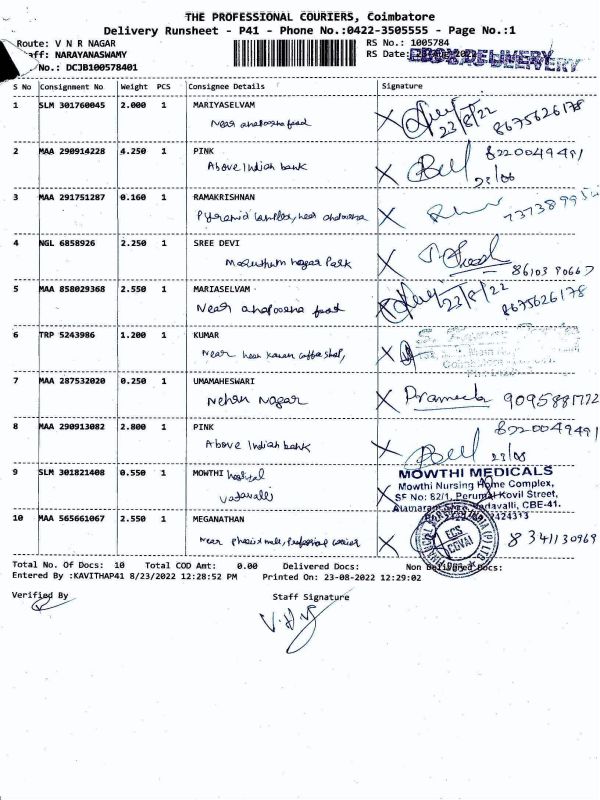 THE PROFESSIONAL COURIERS, Coimbatore
Delivery Runsheet - P41 - Phone No.:0422-3505555 - Page No.:1
Route: V N R NAGAR
RS No.: 1005784
aff: NARAYANASWAMY
RS Date:
No.: DCJB100578401
DELIVERY
S No Consignment No Weight PCS Consignee Details Signature
1 SLM 301760045 2.000 1 MARIYASELVAM
Near food
23/8/22 8675626178
2 MAA 290914228 4.250 1 PINK
Above Indian bank
8220049491
23/08
3 MAA 291751287 0.160 1 RAMAKRISHNAN
Pyramid near
4 NGL 6858926 2.250 1 SREE DEVI
nagar Park
5 MAA 858029368 2.550 1 MARIASELVAM
Near food
23/8/22 8675626178
6 TRP 5243986 1.200 1 KUMAR
Near
7 MAA 287532020 0.250 1 UMAMAHESWARI
Nehru Nagar
Prameela
8 MAA 290913082 2.800 1 PINK
Above Indian bank
8220049491
23/08
9 SLM 301821408 0.550 1 MOWTHI hospital
vadavalli
MOWTHI MEDICALS
Mowthi Nursing Home Complex,
SF No: 82/1, Perumal Kovil Street,
Vadavalli, CBE-41.
2424313
10 MAA 565661067 2.550 1 MEGANATHAN
Near mall, Professional courier
ECS
COVAI
8341130969
Total No. Of Docs: 10 Total COD Amt: 0.00 Delivered Docs: Non Delivered Docs:
Entered By :KAVITHAP41 8/23/2022 12:28:52 PM Printed On: 23-08-2022 12:29:02
Verified By
Staff Signature